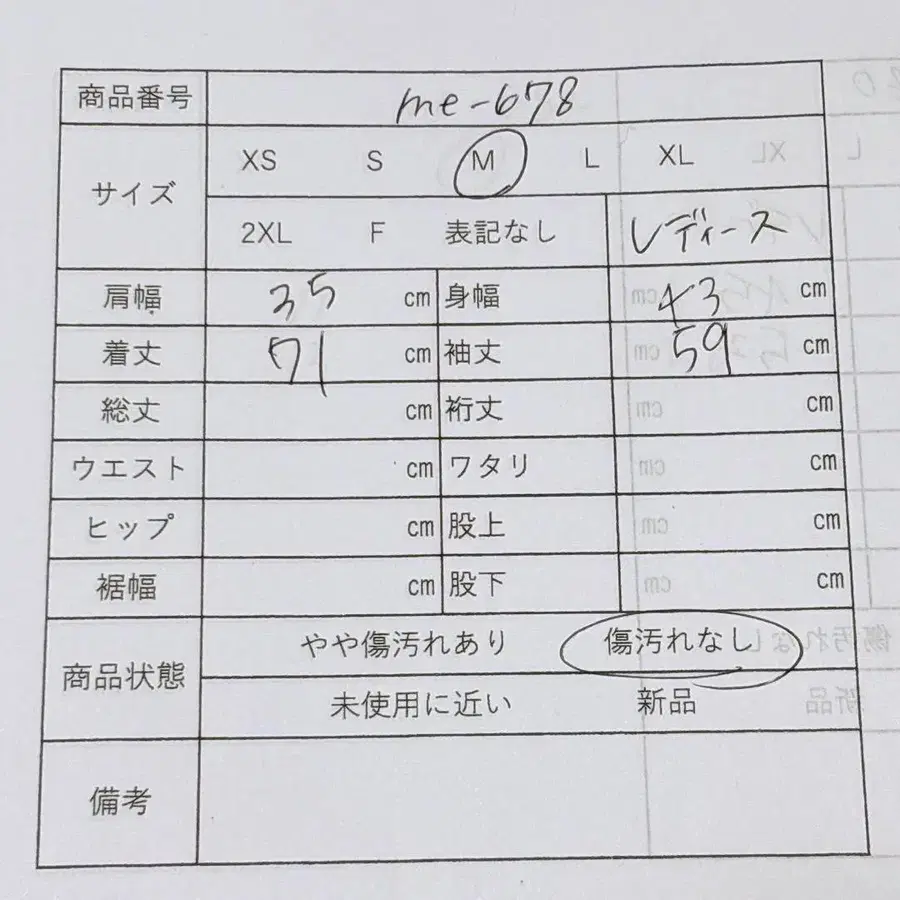 商品番号 me-678
サイズ XS S M L XL
2XL F 表記なし レディース
肩幅 35 cm 身幅 43 cm
着丈 71 cm 袖丈 59 cm
総丈 cm 裄丈 cm
ウエスト cm ワタリ cm
ヒップ cm 股上 cm
裾幅 cm 股下 cm
商品状態 やや傷汚れあり 傷汚れなし
未使用に近い 新品
備考